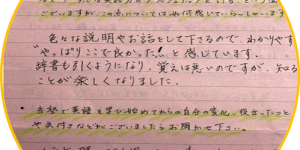 ございますが、この点については如何感じていらっしゃいます
色々な説明やお話をして下さるので、わかりやすく
"やっぱりここで良かった!"と感じています。
辞書も引くようになり、覚えは悪いのですが、知る
ことが楽しくなりました。
・当塾で英語を学び始めてからの自分の変化、役立ったこと
や気付きなどございましたらお聞かせ下さい。